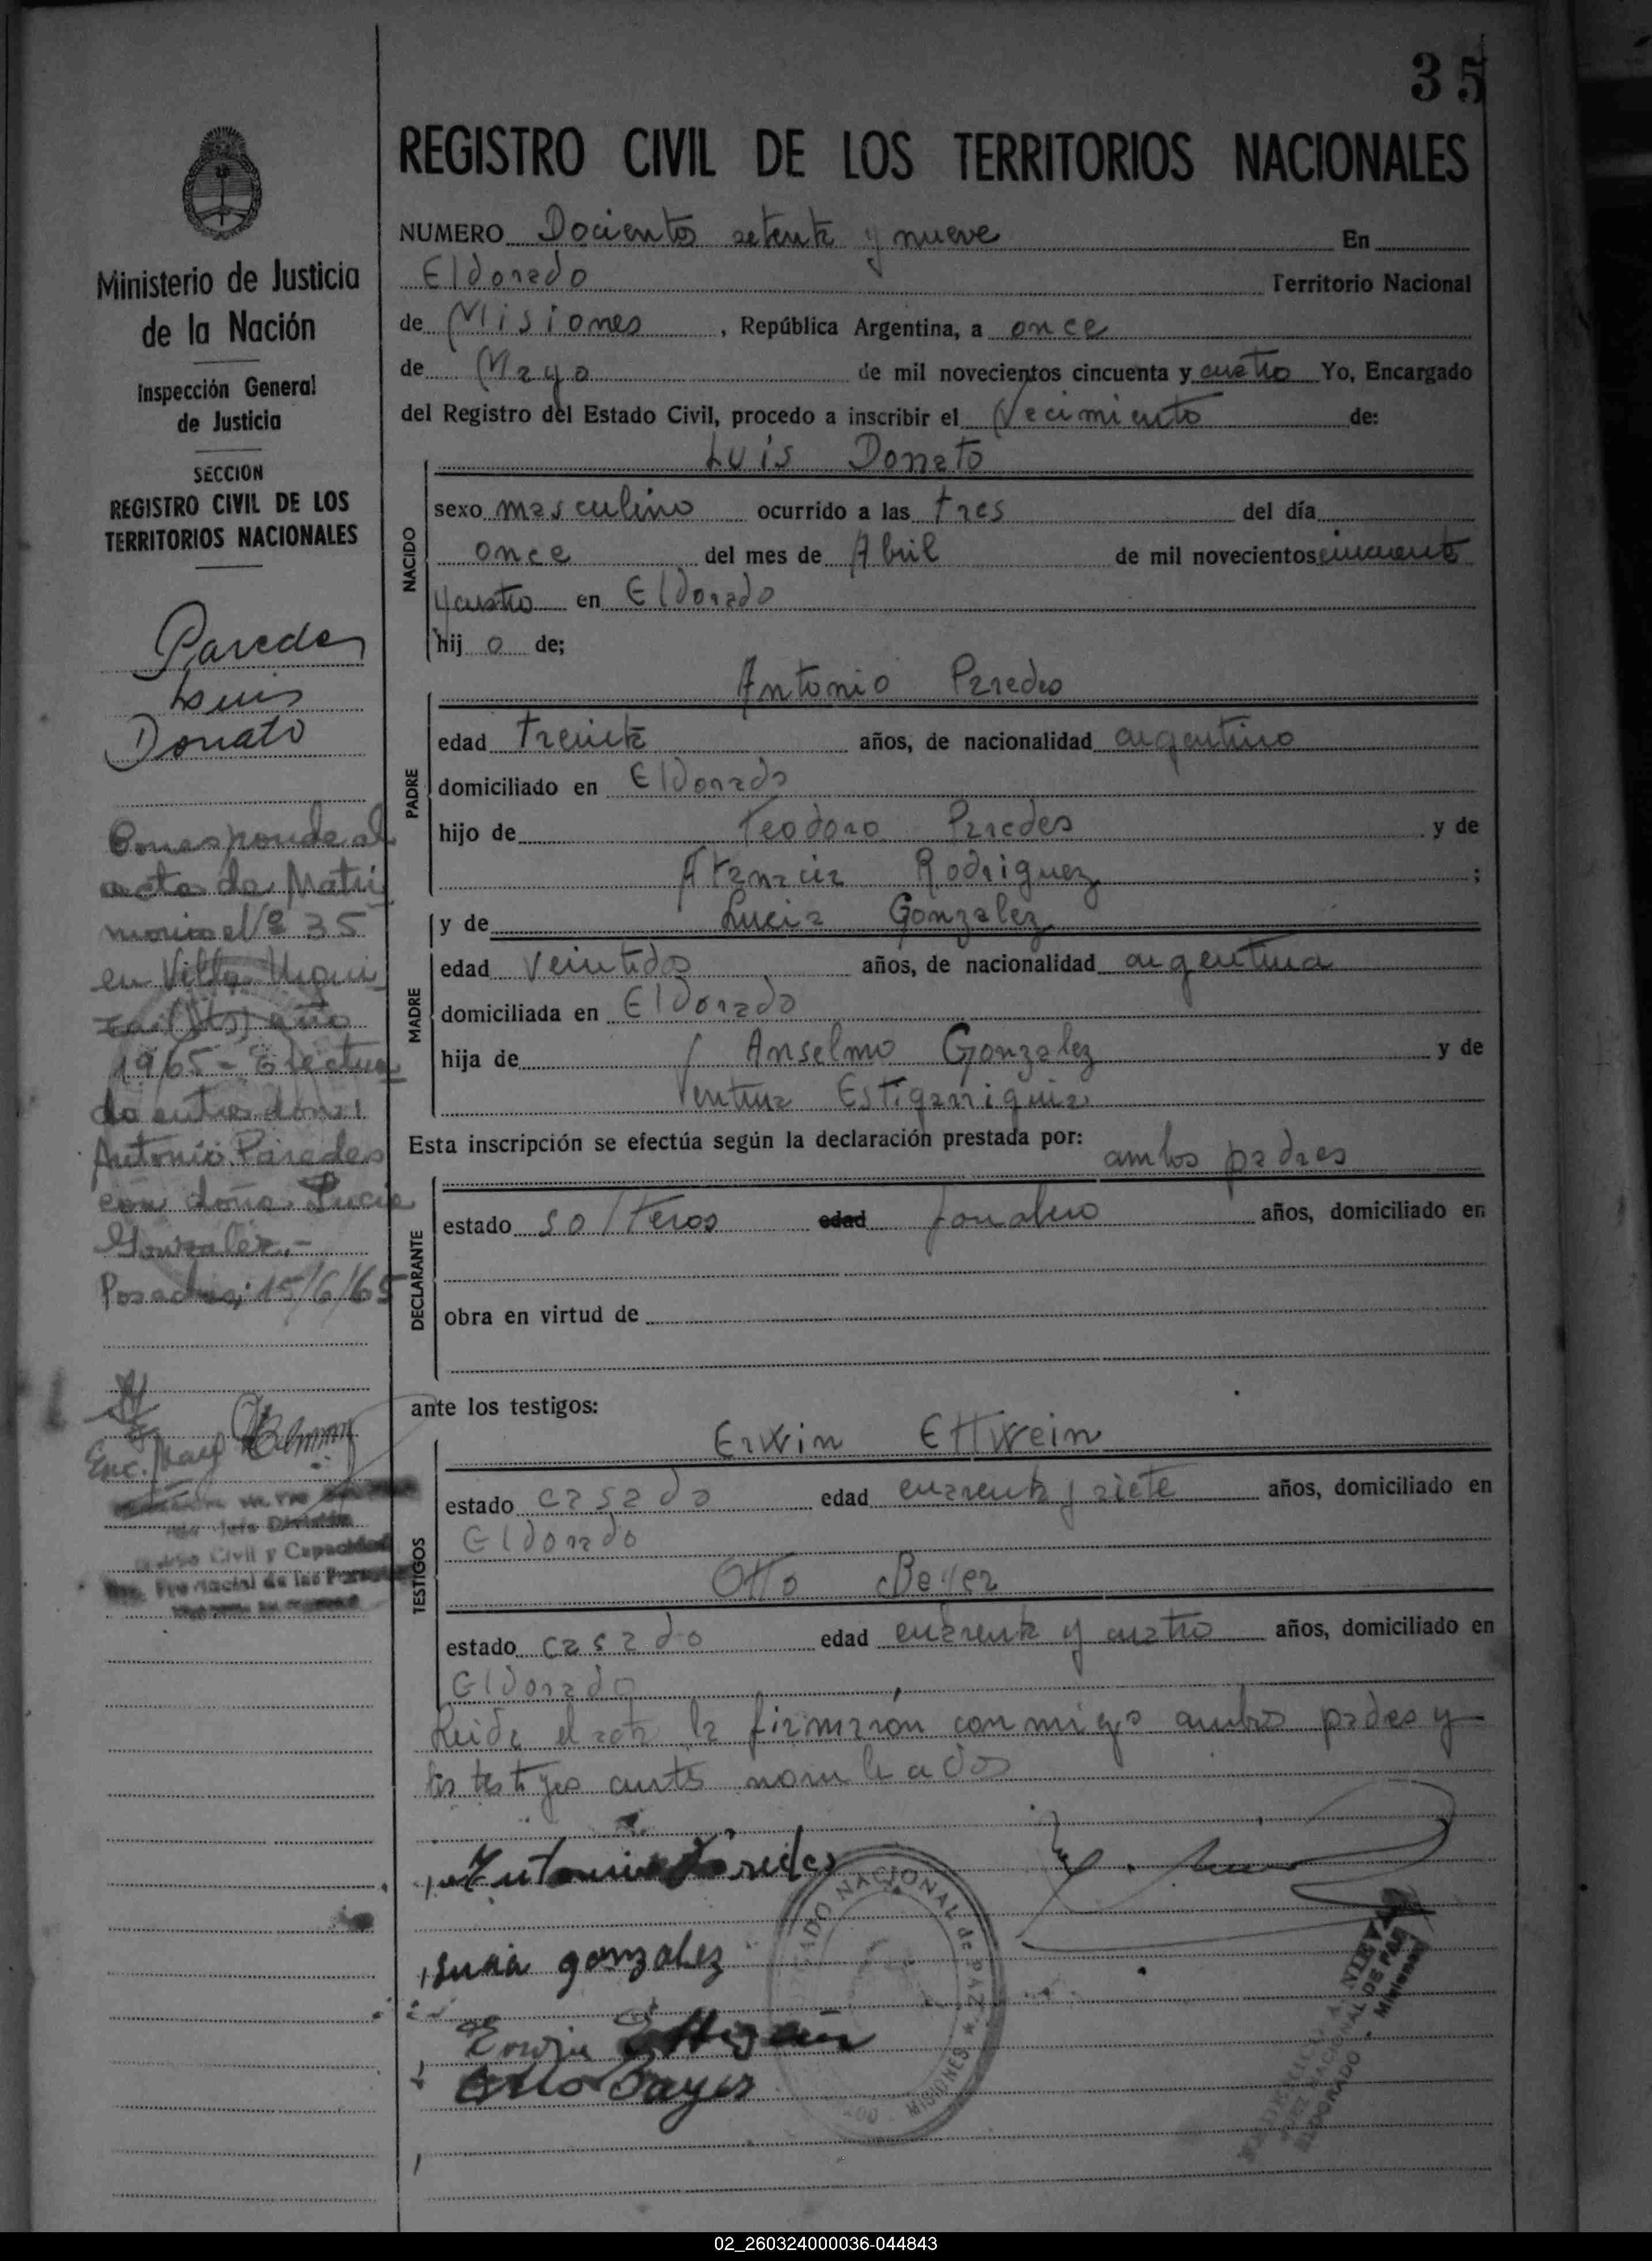 35
REGISTRO CIVIL DE LOS TERRITORIOS NACIONALES
NUMERO Dociento setenta y nueve En
Eldorado Territorio Nacional
de Misiones, República Argentina, a once
de Mayo de mil novecientos cincuenta y cuatro Yo, Encargado
del Registro del Estado Civil, procedo a inscribir el Nacimiento de:
Luis Donato
NACIDO
sexo masculino ocurrido a las tres del día
once del mes de Abril de mil novecientos cincuenta
y cuatro en Eldorado
hij o de;
PADRE
Antonio Paredes
edad treinta años, de nacionalidad argentino
domiciliado en Eldorado
hijo de Teodoro Paredes y de
Atanacia Rodriguez ;
MADRE
y de Lucia Gonzalez
edad veintidos años, de nacionalidad argentina
domiciliada en Eldorado
hija de Anselmo Gonzalez y de
Ventura Estigarriguia
Esta inscripción se efectúa según la declaración prestada por:
ambos padres
DECLARANTE
estado solteros edad años, domiciliado en
obra en virtud de
ante los testigos:
TESTIGOS
Erwin Ettwein
estado casado edad cuarenta y siete años, domiciliado en
Eldorado
Otto Beyer
estado casado edad cuarenta y cuatro años, domiciliado en
Eldorado
Leida el acta la firmaron conmigo ambos padres y
los testigos ante nombrados
Antonio Paredes
Lucia gonzalez
Erwin
Otto Bayer
NACIONAL de PAZ
MISIONES
ELDORADO - Misiones
Ministerio de Justicia
de la Nación
Inspección General
de Justicia
SECCION
REGISTRO CIVIL DE LOS
TERRITORIOS NACIONALES
Paredes
Luis
Donato
Corresponde al
acta de Matri
monio el Nº 35
en Villa Urqui
za (Sts) año
1965 - Efectua
do entre don:
Antonio Paredes
con doña Lucia
Gonzalez.-
Posadas; 15/6/65
Enc.
Jefe División
Civil y Capacidad
Provincial de las Personas
02_260324000036-044843